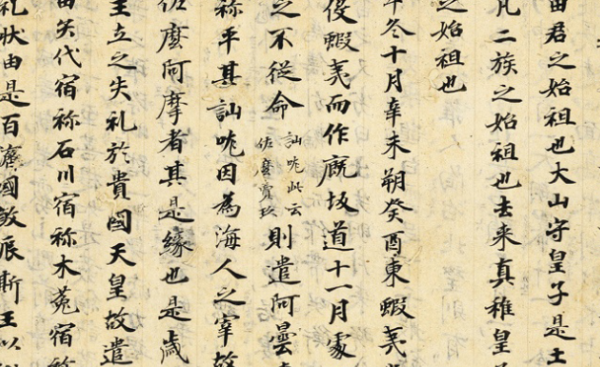 田君之始祖也大山守皇子是土
凡二族之始祖也去来真稚皇
之始祖也
年冬十月辛未朔癸酉東蝦夷
役蝦夷而作厩坂道十一月處
之不從命
訕哤此云
佐麼賣玖
則遣阿曇
祢平其訕哤因為海人之宰故
佐麼阿摩者其是縁也是歳
王立之失礼於貴國天皇故遣
田矢代宿祢石川宿祢木菟宿祢
礼状由是百濟國殺辰斯王以